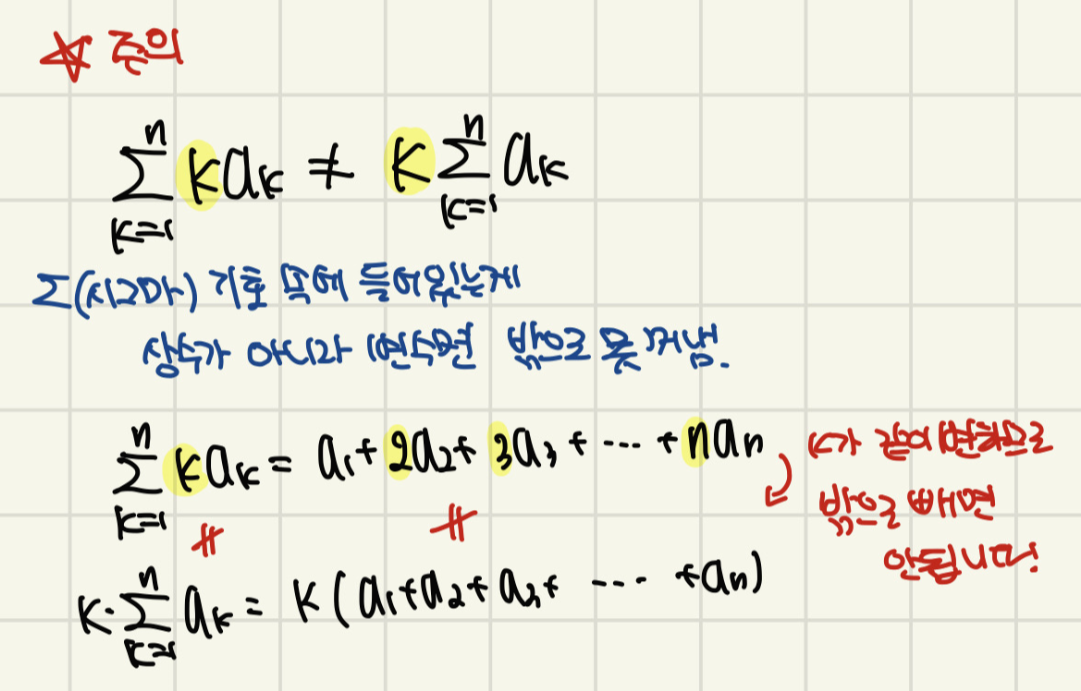 ☆ 주의
n n
∑ kaₖ ≠ k ∑ aₖ
k=1 k=1
∑(시그마) 기호 뒤에 들어있는게
상수가 아니라 변수면 밖으로 못 꺼냄.
n
∑ kaₖ = a₁+2a₂+3a₃+ ... +naₙ k가 같이 변하므로
k=1 밖으로 빼면
∦ ∦ 안됩니다!
n
k·∑ aₖ = k(a₁+a₂+a₃+ ... +aₙ)
k=1